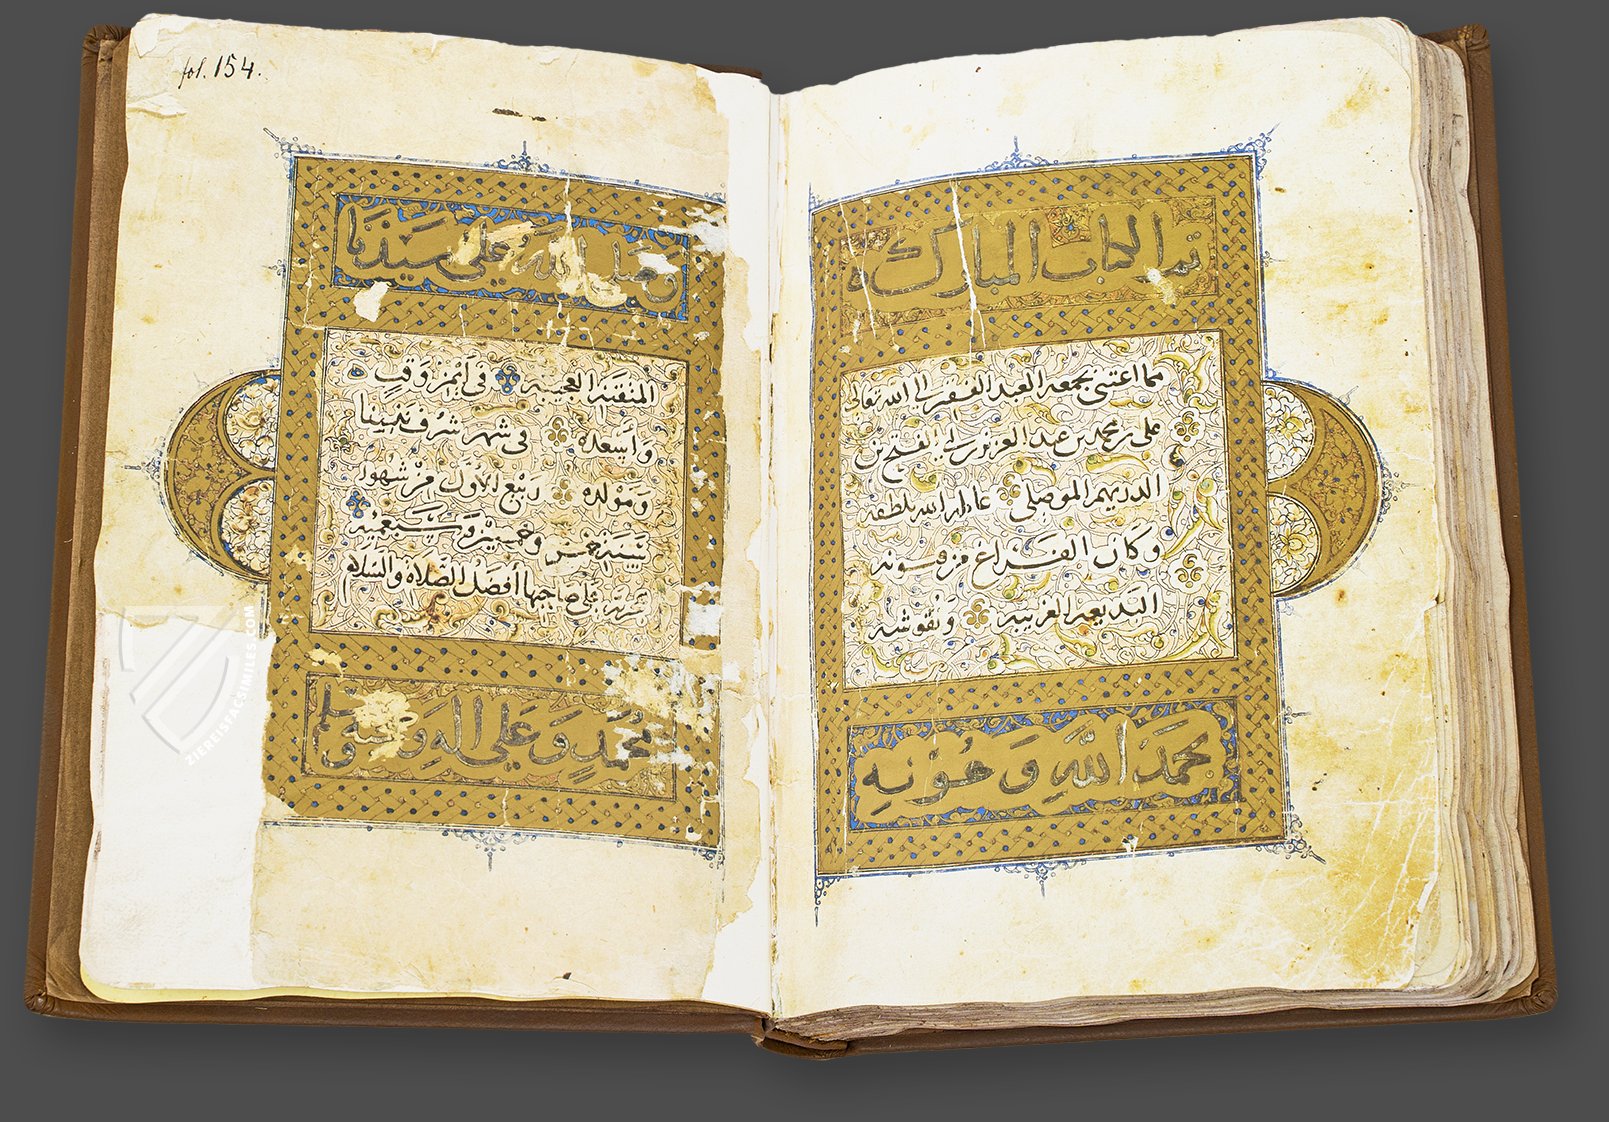 تم الكتاب المبارك
مما اعتنى بجمعه العبد الفقير إلى الله تعالى
على بن محمد بن عبد العزيز بن أبي الفتح بن
الدريهم الموصلي عامله الله بلطفه
وكان الفراغ من فنونه
البديعة الغريبة ونقوشه
بحمد الله وعونه
fol. 154.
وصلى الله على سيدنا
المتقنة العجيبة في أيمن وقت
وأسعده في شهر شرف نبينا
ومولده ربيع الأول من شهور
سنة خمس وخمسين وسبعمئة
على صاحبها أفضل الصلاة والسلام
محمد وعلى اله
ZIEREISFACSIMILES.COM